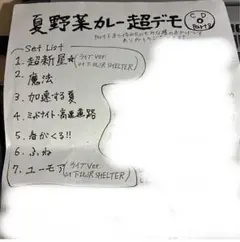 夏野菜カレー超デモ
CD
Set List
1. 超新星★(ライブver. at FOUR SHELTER)
2. 魔法
3. 加速する夏
4. ミッドナイト・高速道路
5. 春がくる!!
6. ふね
7. ユーモア(ライブver. at FOUR SHELTER)